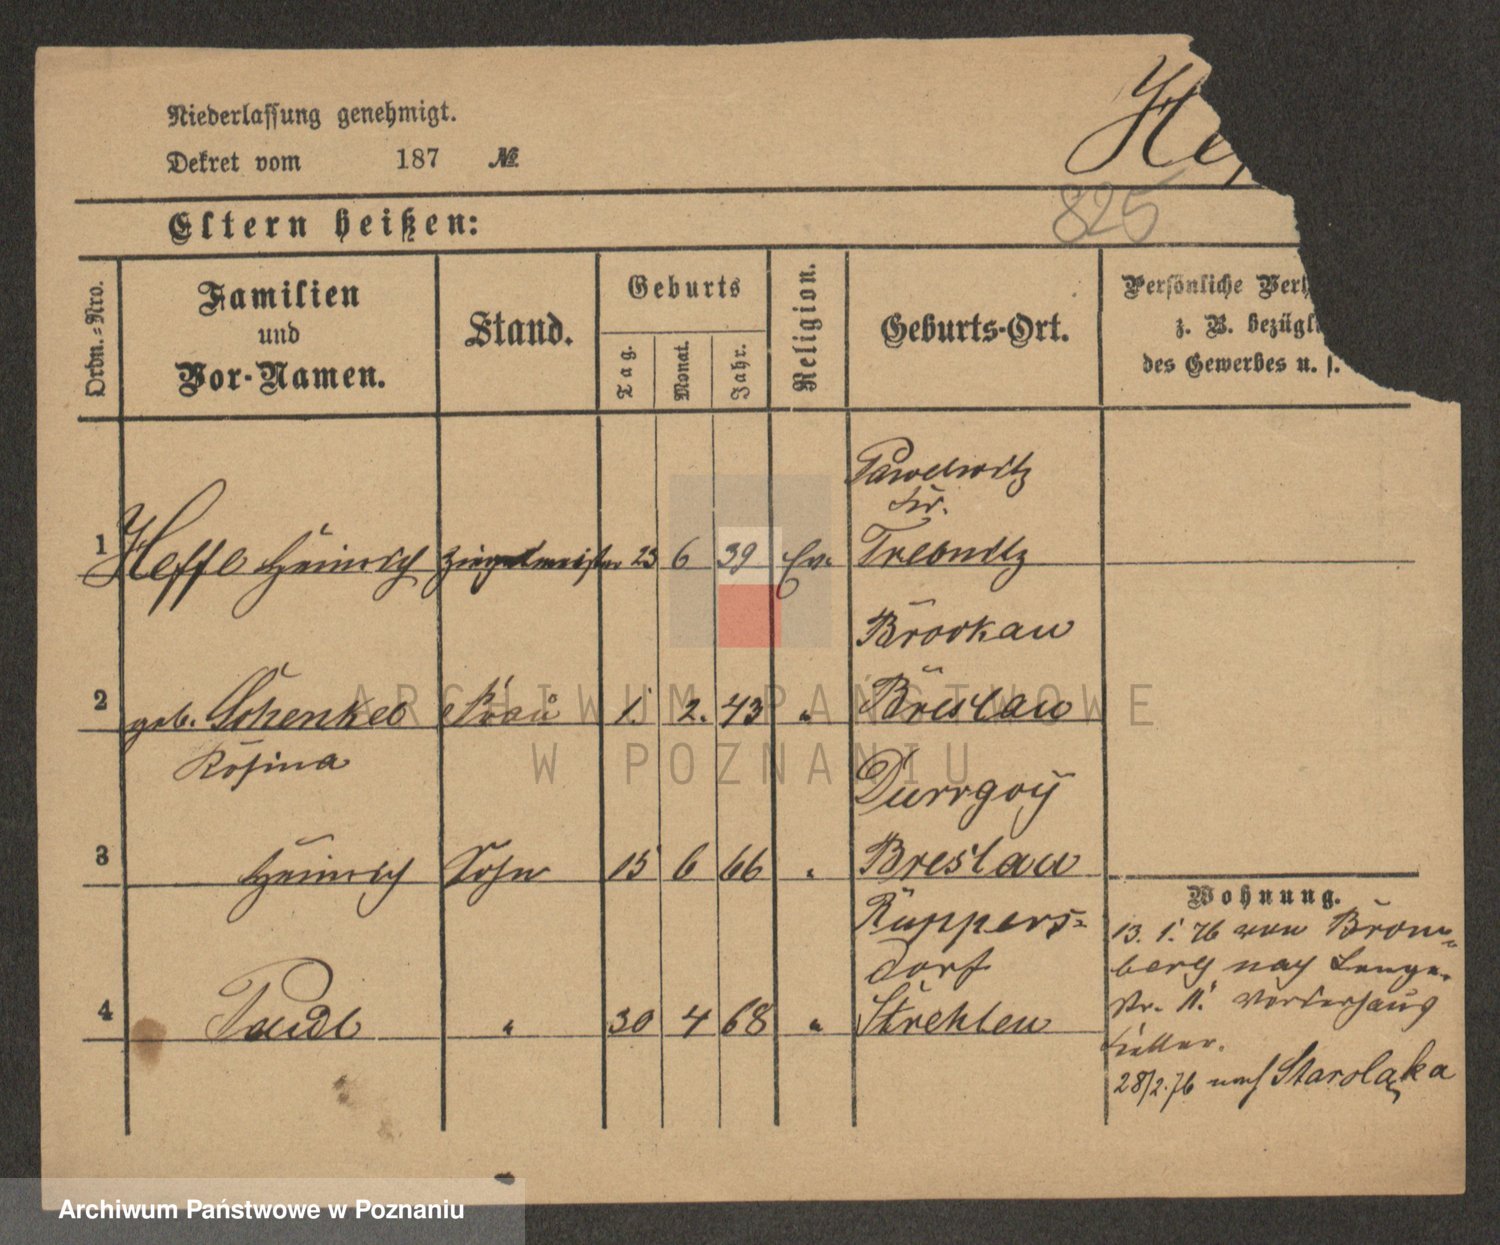 Niederlassung genehmigt.
Dekret vom 187 №
He
825
Eltern heißen:
Ordn.-Nro.
Familien
und
Vor-Namen.
Stand.
Geburts
Tag.
Monat.
Jahr.
Religion.
Geburts-Ort.
Persönliche Verh
z. B. bezügl
des Gewerbes u. s.
Pawelwitz
Kr.
1 Hesse Heinrich Ziegelmeister 23 6 39 Ev. Trebnitz
Brockau
2 geb. Schenkel Frau 1. 2. 43 " Breslau
Rosina
Durrgoy
3 Heinrich Sohn 15 6 66 " Breslau
Ruppers=
dorf
4 Paul " 30 4 68 " Strehlen
Wohnung.
13. 1. 76 von Brom=
berg nach Lange-
str. 11. Vorderhaus
Keller.
28/2.76 nach Starolęka
ARCHIWUM PAŃSTWOWE
W POZNANIU
Archiwum Państwowe w Poznaniu